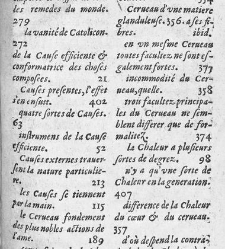 les remedes du monde.
279
la vanité de Catolicon.
272
de la Cause efficiente &
conformatrice des choses
composees. 21
Causes presentes, l'effet
s'en ensuit. 402
quatre sortes de Causes.
63
instrument de la Cause
efficiente. 52
Causes externes trauer-
sent la nature particulie-
re. 213
les Causes se tiennent
par la main. 115
le Cerueau fondement
des plus nobles actions de
l'ame. 189
Cerueau d'vne matiere
glanduleuse. 356. a ses fi-
bres. ibid.
en vn mesme Cerueau
toutes facultez ne sont es-
galement fortes. 377
incommodité du Cer-
ueau, quelle. 358
trois facultez principa-
les du Cerueau ne sem-
blent differer que de for-
malité. 374
la Chaleur a plusieurs
sortes de degrez. 98
n'y a qu'vne sorte de
Chaleur en la generation.
407
difference de la Chaleur
du cœur & du cerueau.
357
d'où despend la contra-